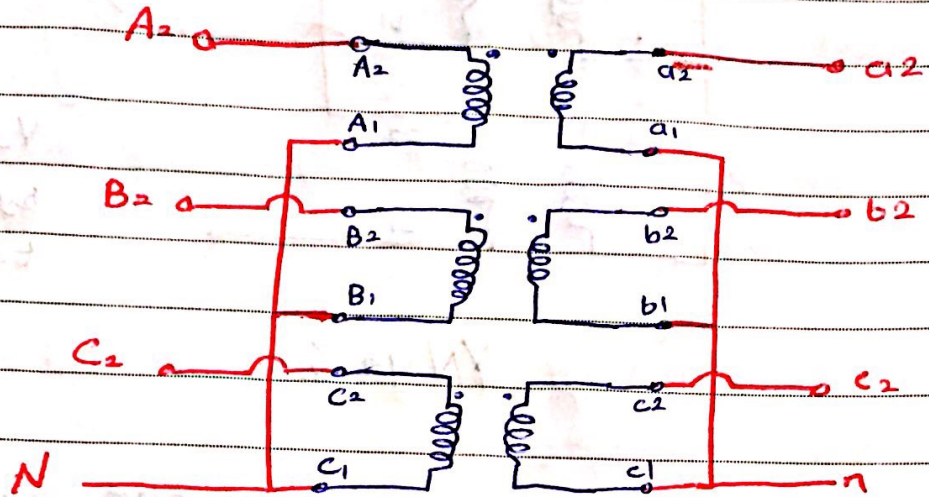 A2 A2 a2 a2
A1 a1
B2 B2 b2 b2
B1 b1
C2 C2 c2 c2
N C1 c1 n